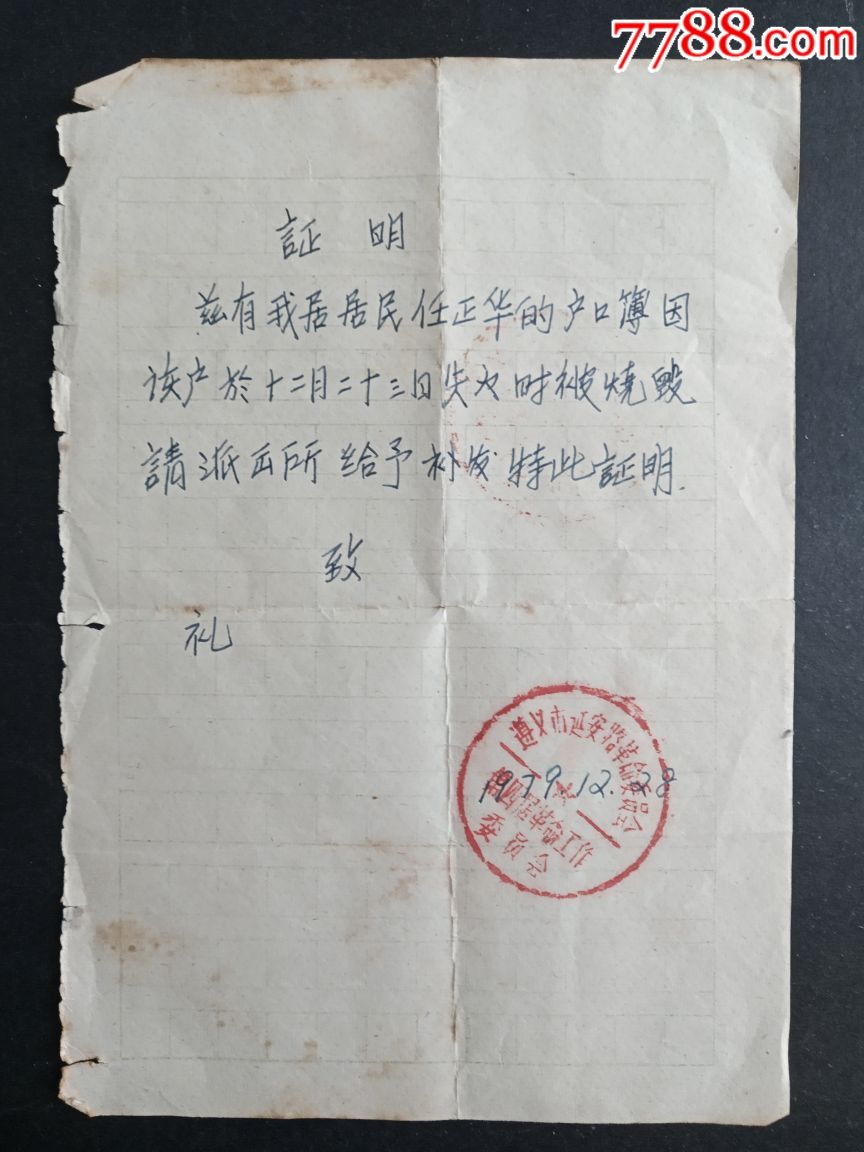 7788.com
証 明
兹有我居居民任正华的户口簿因
该户於十二月二十三日失火时被燒毁
請派出所给予补发特此証明.
致
礼
遵义市延安路革命委员会
1979.12.28
四居革命工作
委员会